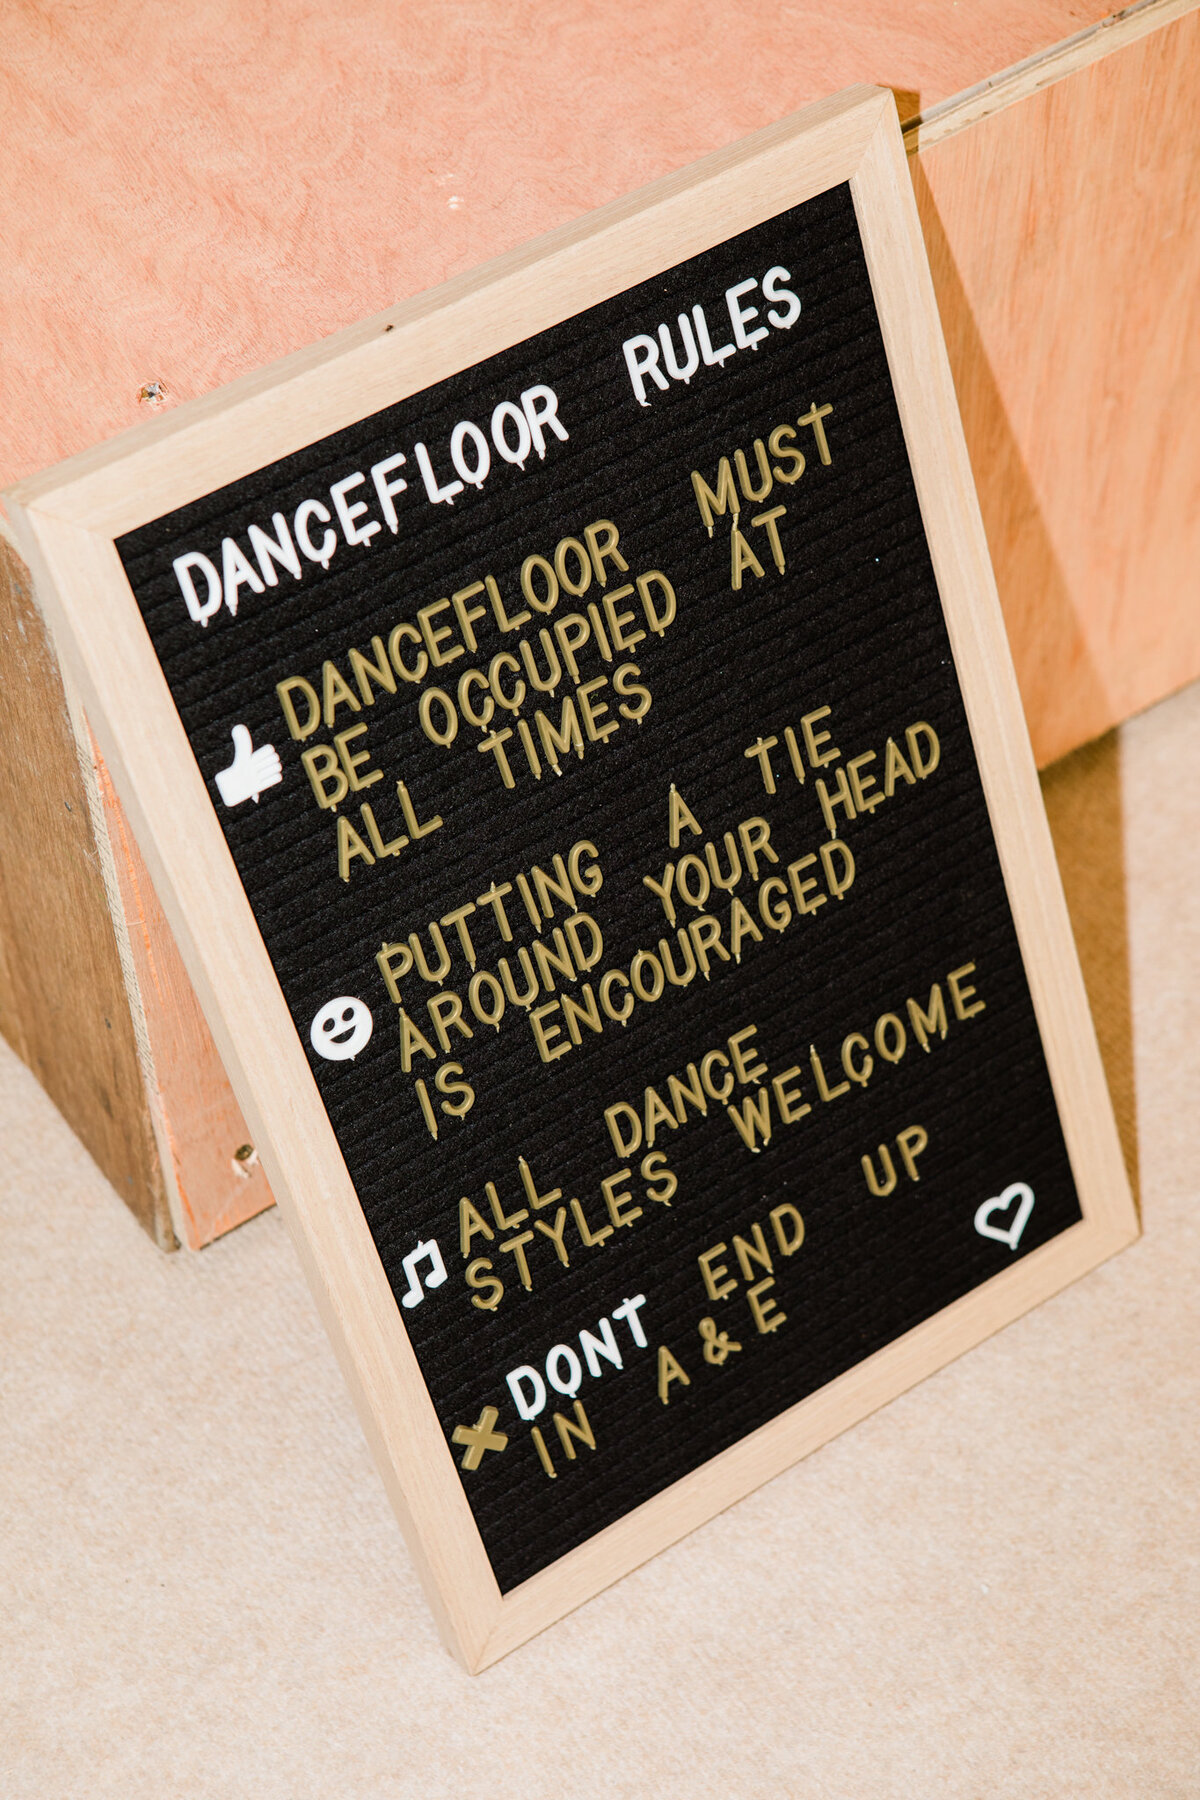 DANCEFLOOR RULES
DANCEFLOOR MUST
BE OCCUPIED AT
ALL TIMES
PUTTING A TIE
AROUND YOUR HEAD
IS ENCOURAGED
ALL DANCE
STYLES WELCOME
DONT END UP
IN A & E